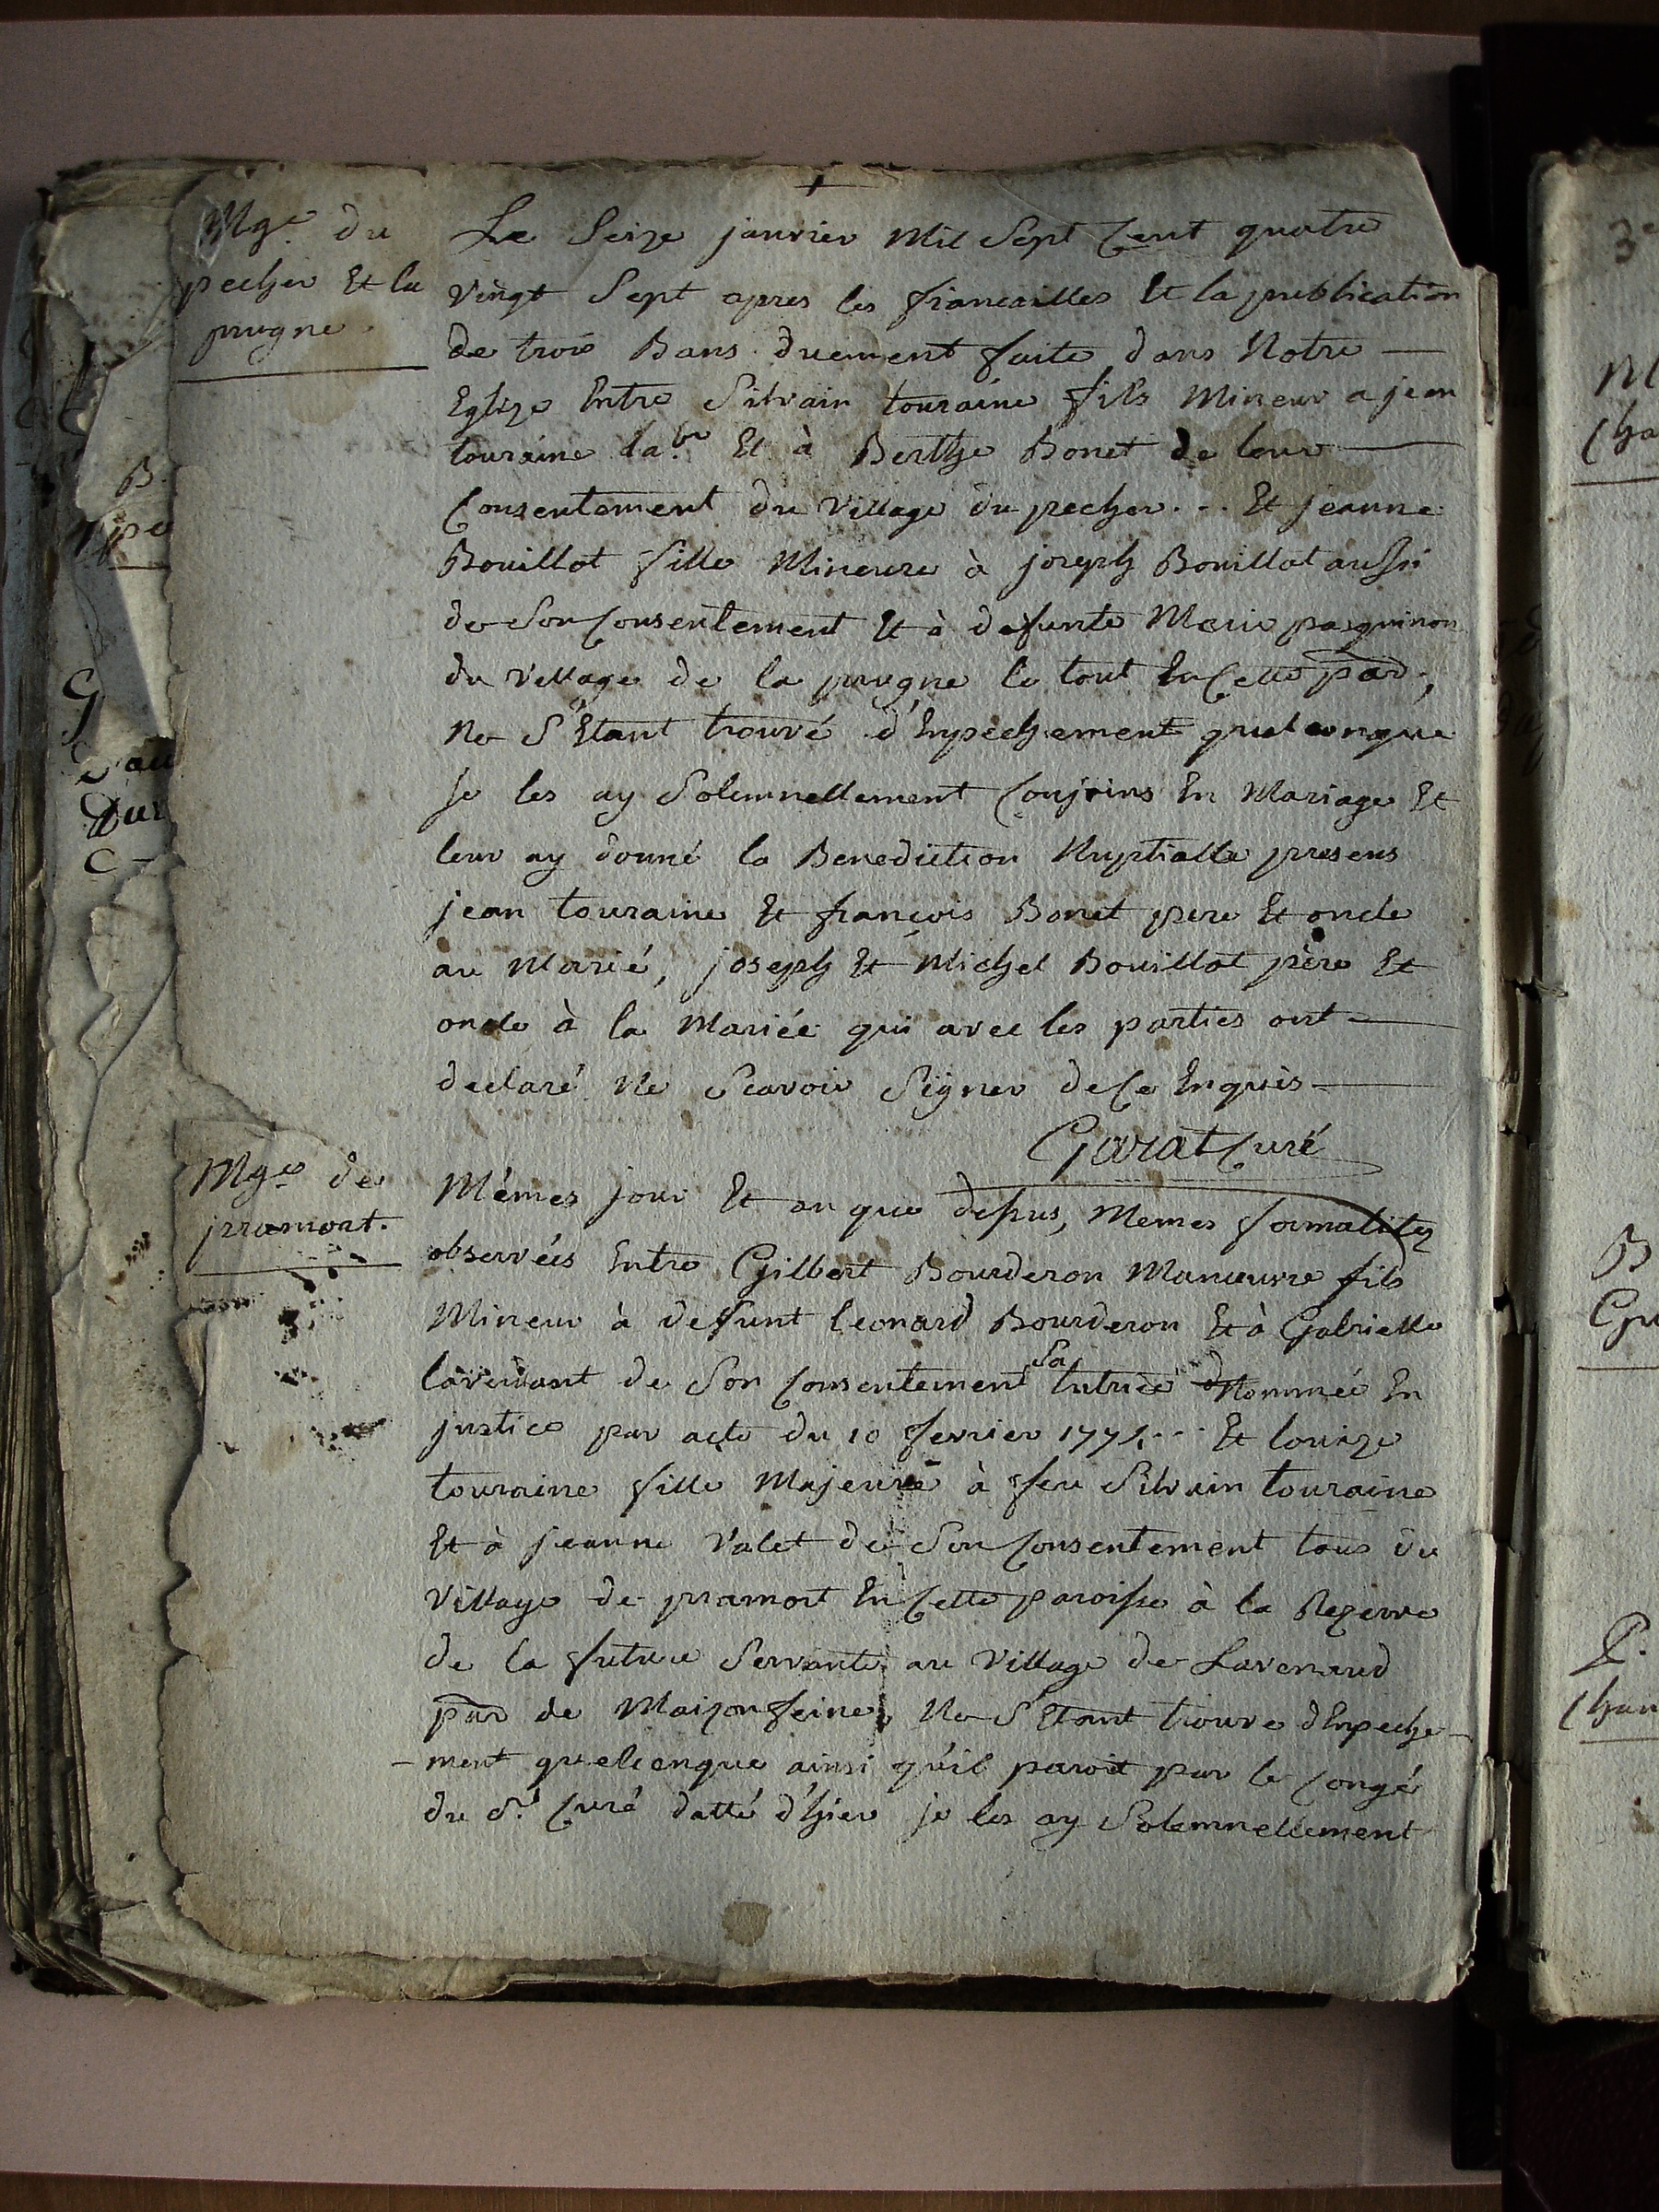 Mg.e du
pecher Et la
prugne
Le Seize janvier Mil Sept Cent quatre
vingt Sept apres les fiancailles Et la publication
de trois Bans duement faite dans Notre
Eglize Entre Silvain touraine fils Mineur a jean
touraine la.br Et à Berthe Bonet de leur
Consentement du Village du pecher... Et jeanne
Bouillot fille Mineure à joseph Bouillot aussi
de Son Consentement Et à defunte Marie pasquinon
du Village de la prugne le tout En Cette par.,
Ne S'Etant trouvé d'Enpechement quelconque
je les ay Solemnellement Conjoins En Mariage Et
leur ay donné la Benediction Nuptialle presens
jean touraine Et françois Bonet pere Et oncle
au Marié, joseph Et Michel Bouillot père Et
oncle à la Mariée qui avec les parties ont
declaré Ne Scavoir Signer de Ce Enquis
Garat Curé
Mg.e de
pramort.
Mêmes jour Et an que dessus, Memes formalités
observées Entre Gilbert Bourderon Manœuvre fils
Mineur à defunt leonard Bourderon Et à Gabrielle
lavaudant de Son Consentement Sa tutrice Nommée En
justice par acte du 10 fevrier 1771... Et louize
touraine fille Majeure à feu Silvain touraine
Et à jeanne Valet de Son Consentement tous du
Village de pramort En Cette paroisse à la Rezerve
de la future Servante au Village de Lavenaud
par de Maizonfeine, Ne S'Etant trouve d'Enpeche-
-ment quelconque ainsi qu'il paroit par le Congé
du S.r Curé datté d'hier je les ay Solemnellement